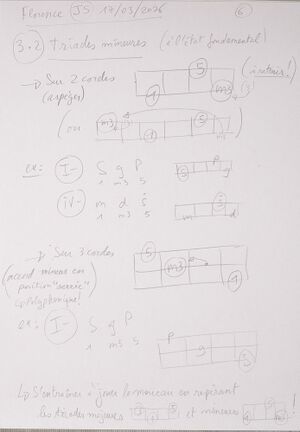 Florence (JS) 17/03/2026 (6)
3.2) Triades mineures (à l'état fondamental)
→ Sur 2 cordes (à retenir!)
(arpèges)
5
1 m3
(ou
m3 5
1
ex: I- S g P
1 m3 5
P
S g
iv- m d
1 m3 5
m d
→ Sur 3 cordes
(accord mineur en
position "serrée"
polyphonique!
5
m3
1
ex: I- S g P
1 m3 5
P
g
↳ S'entraîner à jouer le morceau en repérant
les triades majeures et mineures !